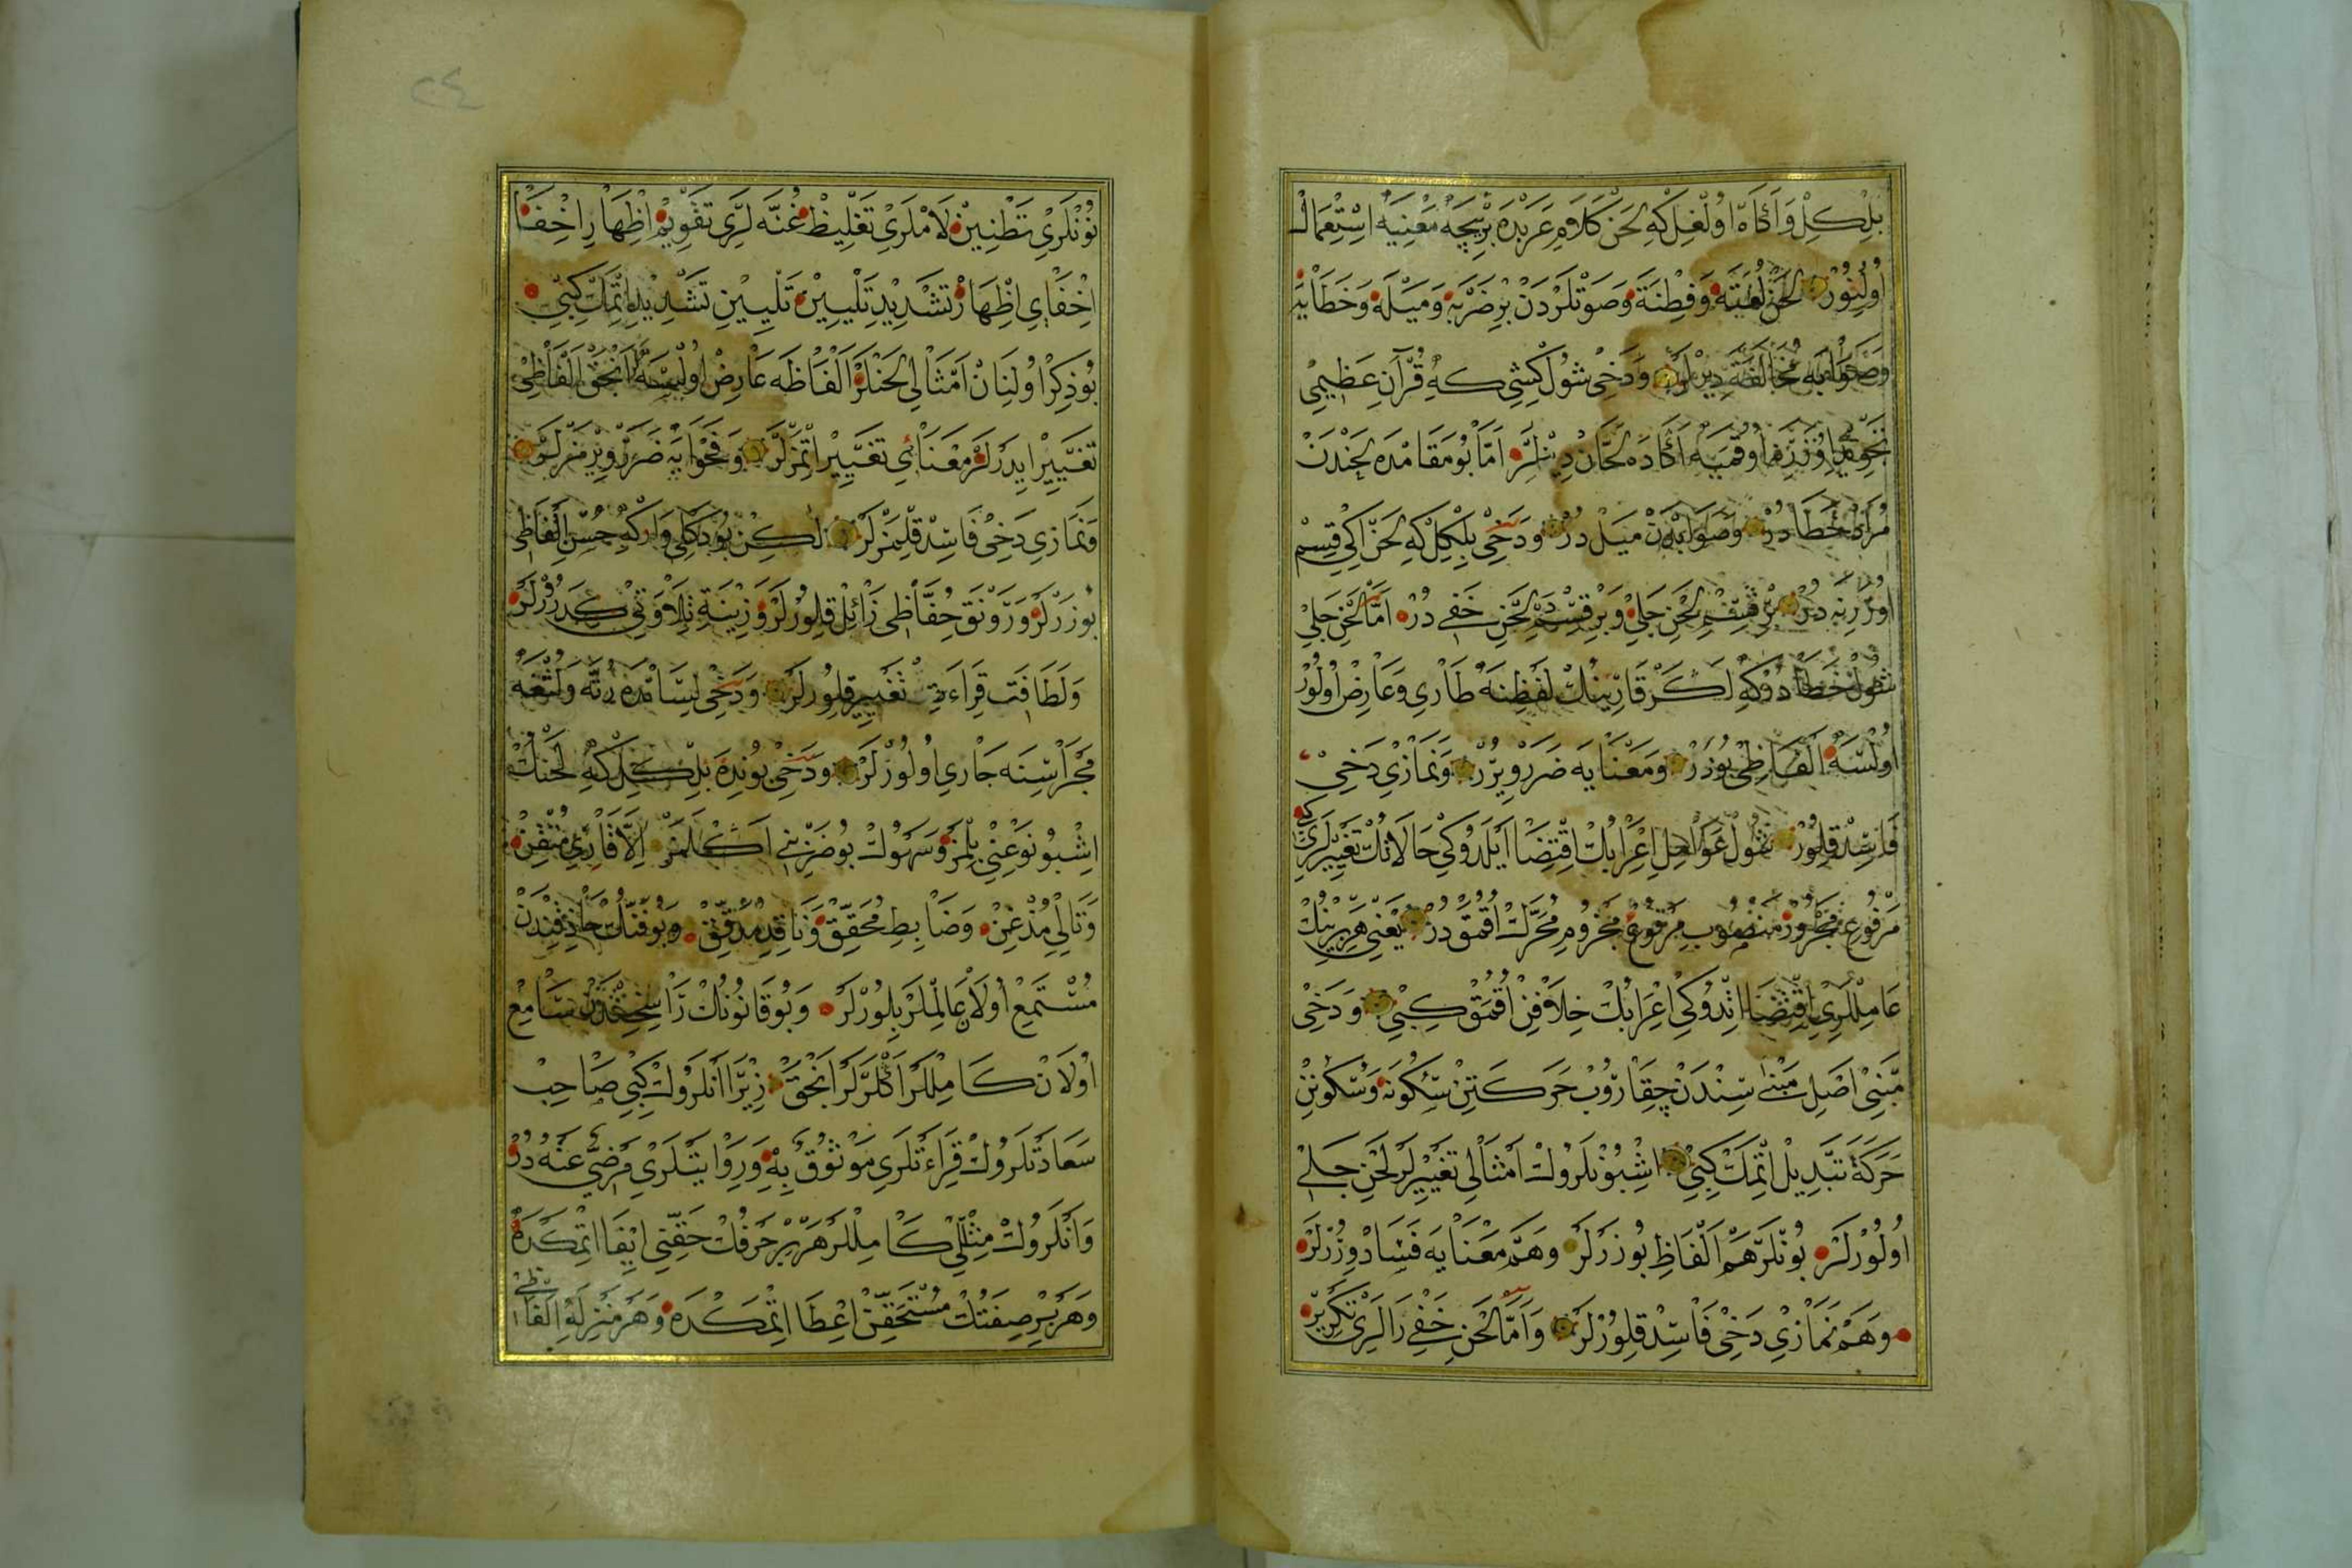 بلكل و اكاه اولغل كه لحن كلام عربده برنيچه معنيه استعمال
اولنور لحن لغته و فطنة و صوتلردن بر ضربه و ميله و خطايه
و صوابه مخالفه ديرلر و دخى شول كشى كه قرآن عظيمى
اوقيه اكا ده لحان ديرلر اما بو مقامده لحندن
مراد خطادر و صوابدن ميل در و دخى بلكل كه لحن ايكى قسم
اوزرينه در بر قسم لحن جلى و بر قسم لحن خفى در اما لحن جلى
شول خطا دركه لكر قارينك لفظنه طارى و عارض اولور
اولسه الفاظى بوزر و معنايه ضرر ويرر و نمازى دخى
فاسد قلور شول عوامل اعرابك اقتضا ايلدوكى حالاتك تغييرلرى كى
مرفوع مجرور منصوب مرفوع مجزوم محرك اوقمق در يعنى هر برينك
عامللرى اقتضا اتدوكى اعرابك خلافن اوقمق كبى و دخى
مبنى اصل مبنى سندن چقاروب حركتن سكونه و سكونن
حركة تبديل اتمك كبى اشبونلروك امثالى تغييرلر لحن جلى
اولورلر بونلر هم الفاظ بوزرلر و هم معنايه فساد ويررلر
و هم نمازى دخى فاسد قلورلر و اما لحن خفى رالرى تكرير
٢٤
نونلرى تطنين لاملرى تغليظ غنه لرى تقويم اظهار اخفا
اخفاى اظهار تشديد تليين تليين تشديد اتمك كبى
بو ذكر اولنان امثالى لحنلر الفاظه عارض اولسه انجق الفاظى
تغيير ايدرلر معناى تغيير اتمزلر و فحوايه ضرر ويرمزلر
و نمازى دخى فاسد قلمزلر لكن بو دكلى وار كه حسن الفاظى
بوزرلر و رونق حفاظى زائل قلورلر و زينة تلاوتى كدررلر
و لطافت قراءتى تغيير قلورلر و دخى لسانده رته و لثغه
مجراسنه جارى اولورلر و دخى بونده بلكل كه لحنك
اشبو نوعنى بلمز و سهولت بو ضربنى اكلمز الا قارئ متقن
و تالى مذعن و ضابط محقق و ناقد مدقق و بو فنك حاذقندن
مستمع اولان عالملر بلورلر و بو قانونك راسخندن سامع
اولان كاملر اكلرلر انجق زيرا انلروك كبى صاحب
سعادتلروك قراءتلرى موثوق به و روايتلرى مرضى عنه در
و انلروك مثللى كاملر هر بر حرفك حقنى ايفا اتمكده
و هر بر صفتك مستحقن اعطا اتمكده و هر منزله الفاظى